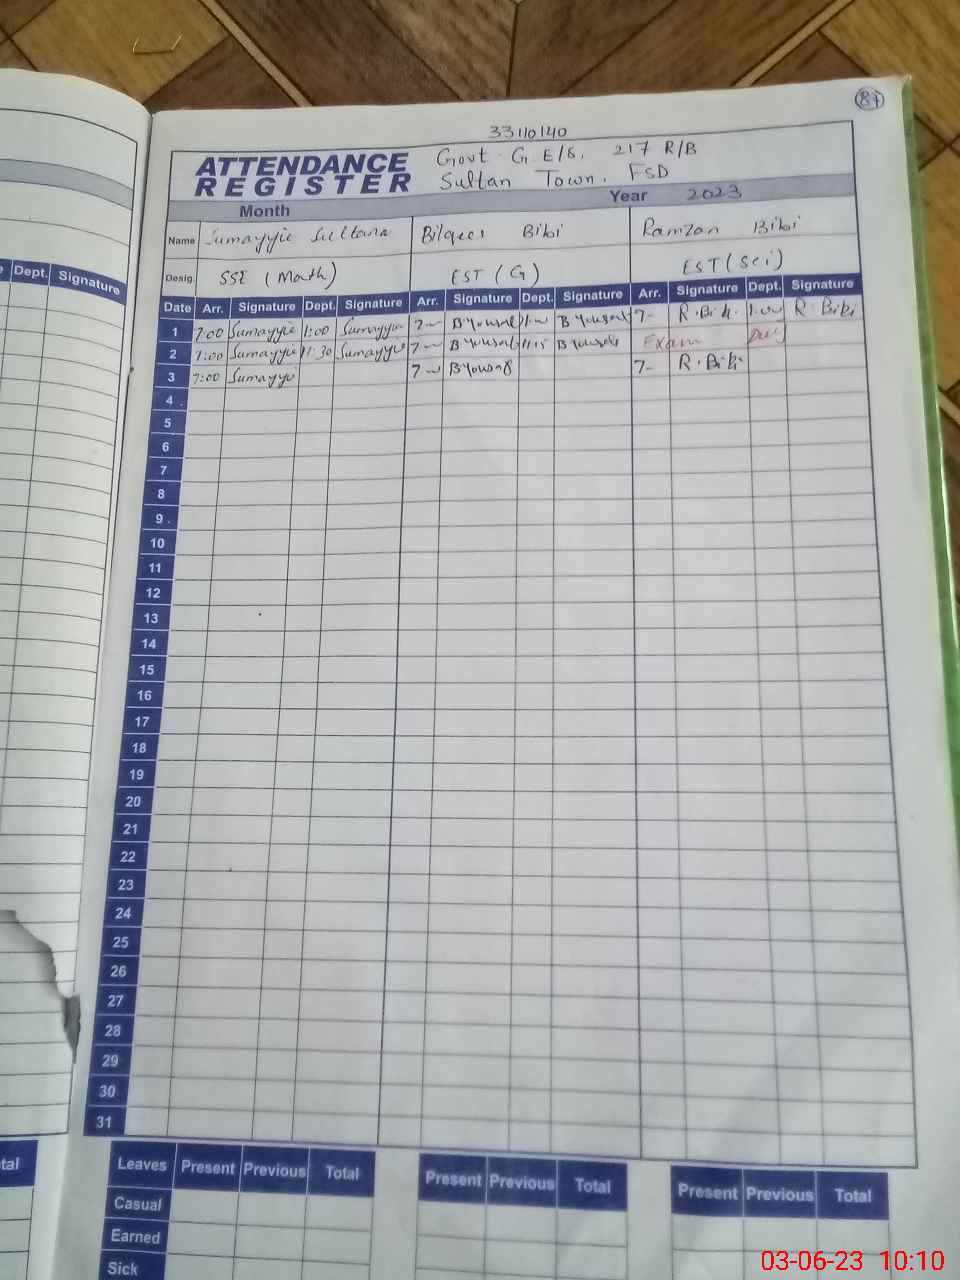 87
33110140
ATTENDANCE REGISTER
Govt. G. E/S, 217 R/B
Sultan Town. FSD
Month Year 2023
Name Sumayyie Sultana Bilqees Bibi Ramzan Bibi
Desig. SSE (Math) EST (G) EST (Sci)
Dept. Signature
Date Arr. Signature Dept. Signature Arr. Signature Dept. Signature Arr. Signature Dept. Signature
1 7:00 Sumayyie 1:00 Sumayyie 7 7- R.Bibi 1:00 R.Bibi
2 7:00 Sumayyie 11:30 Sumayyie 7 11:15 Exam Duty
3 7:00 Sumayyi 7 7- R.Bibi
4
5
6
7
8
9
10
11
12
13
14
15
16
17
18
19
20
21
22
23
24
25
26
27
28
29
30
31
tal
Leaves Present Previous Total Present Previous Total Present Previous Total
Casual
Earned
Sick
03-06-23 10:10